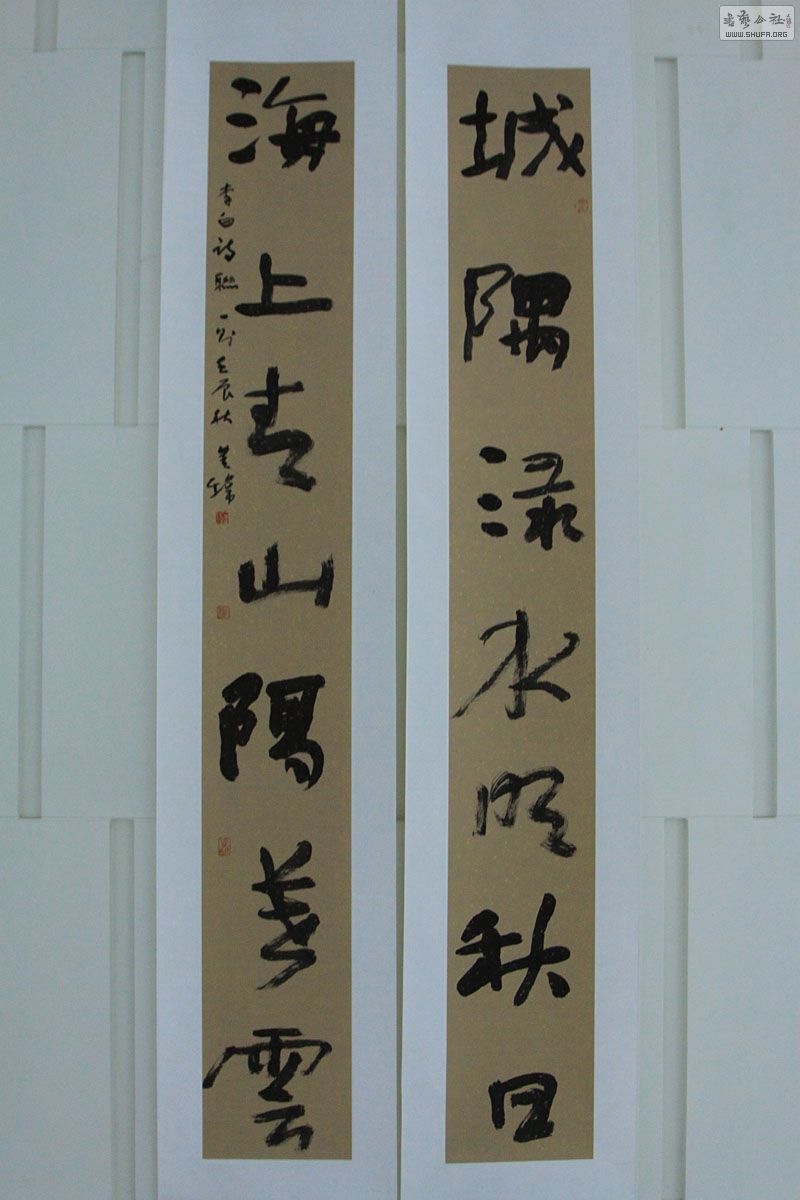 城隅渌水明秋日
海上青山隔暮雲
李白詩聯一則壬辰秋
書藝公社
WWW.SHUFA.ORG